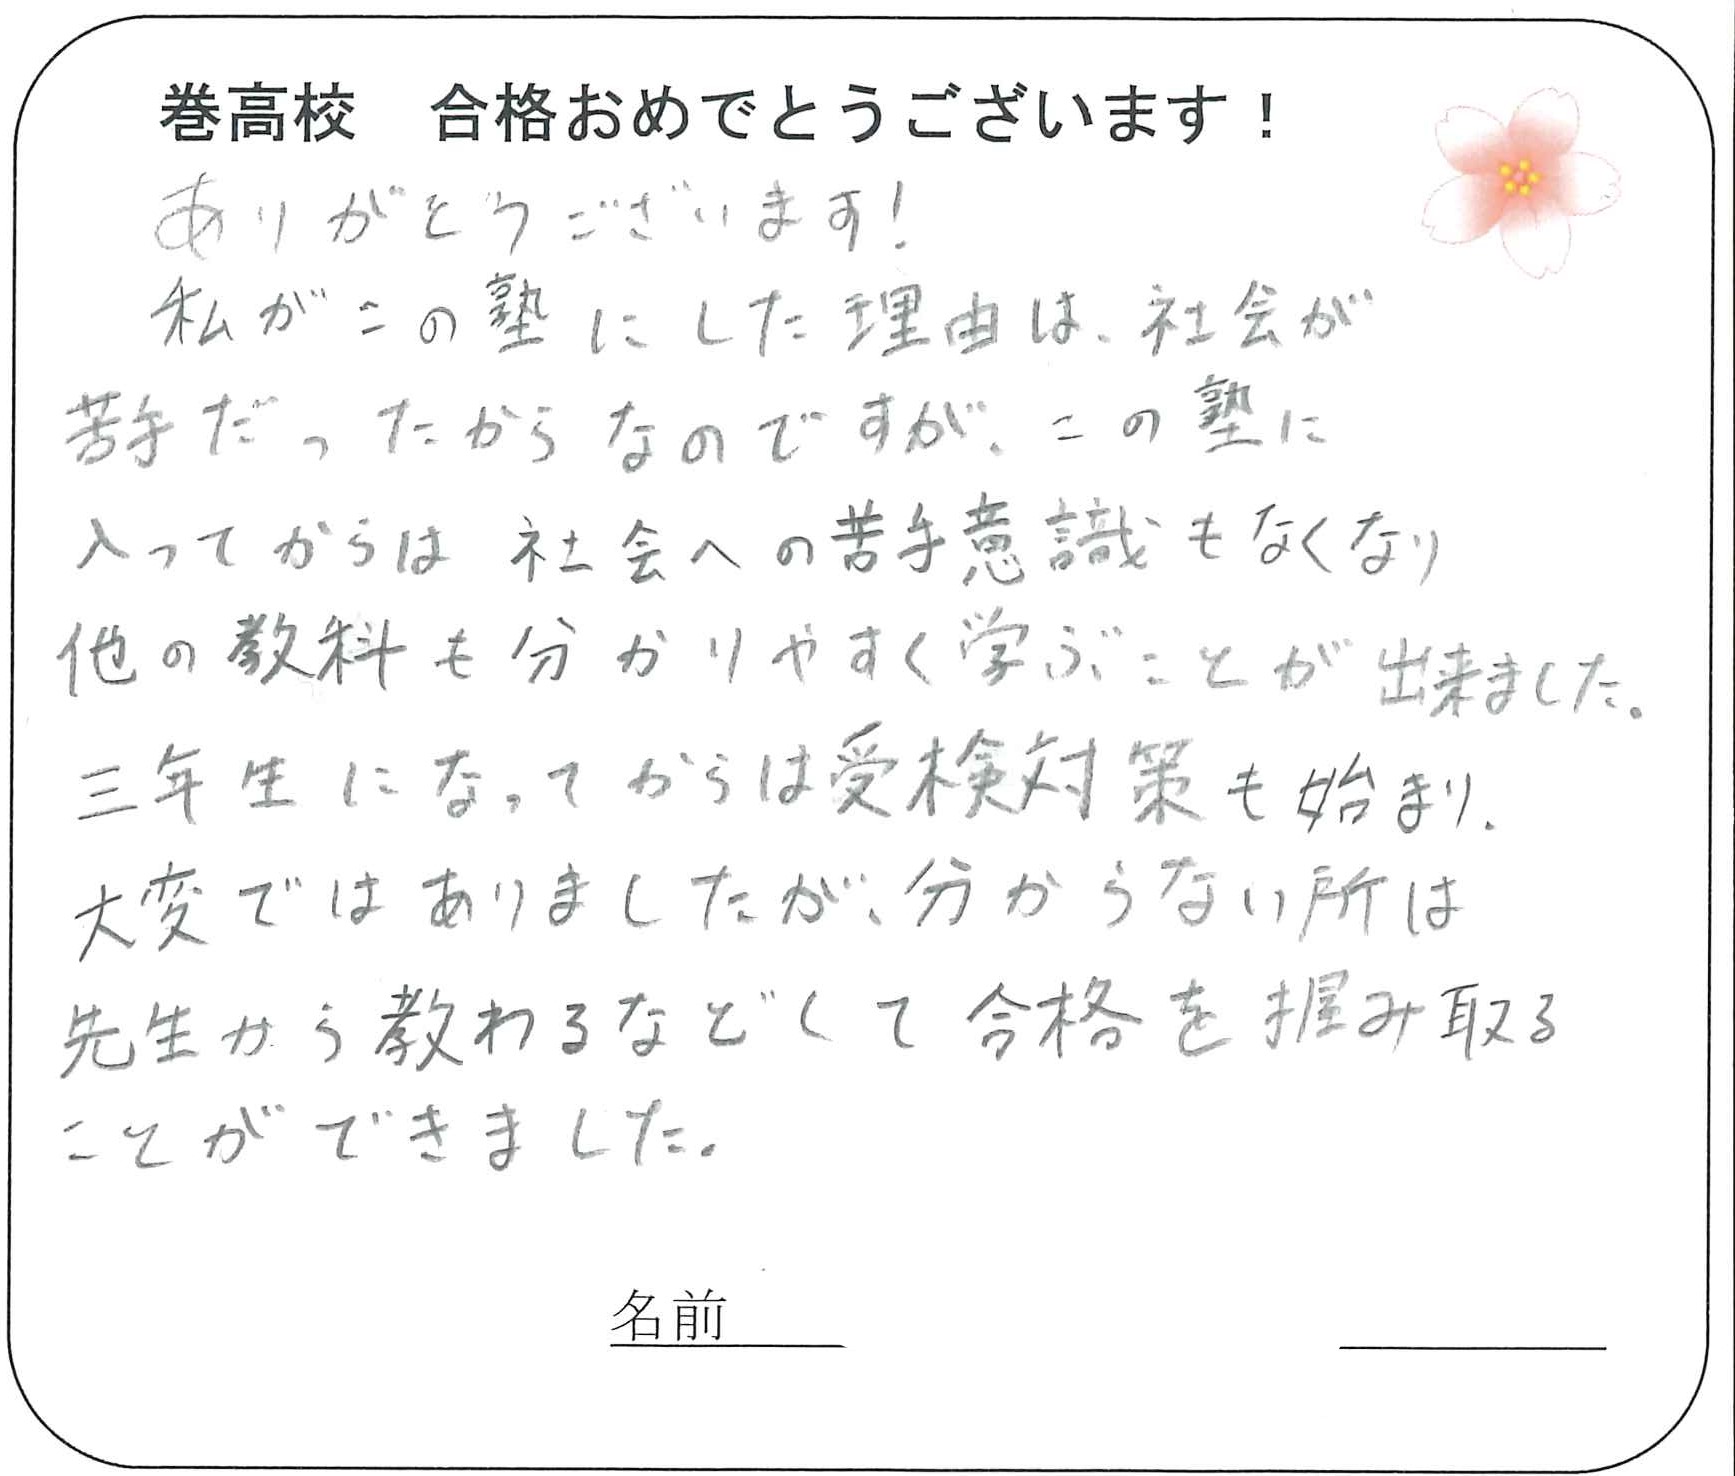 巻高校　合格おめでとうございます！
ありがとうございます!
私がこの塾にした理由は、社会が
苦手だったからなのですが、この塾に
入ってからは社会への苦手意識もなくなり
他の教科も分かりやすく学ぶことが出来ました。
三年生になってからは受検対策も始まり、
大変ではありましたが、分からない所は
先生から教わるなどして合格を掴み取る
ことができました。
名前